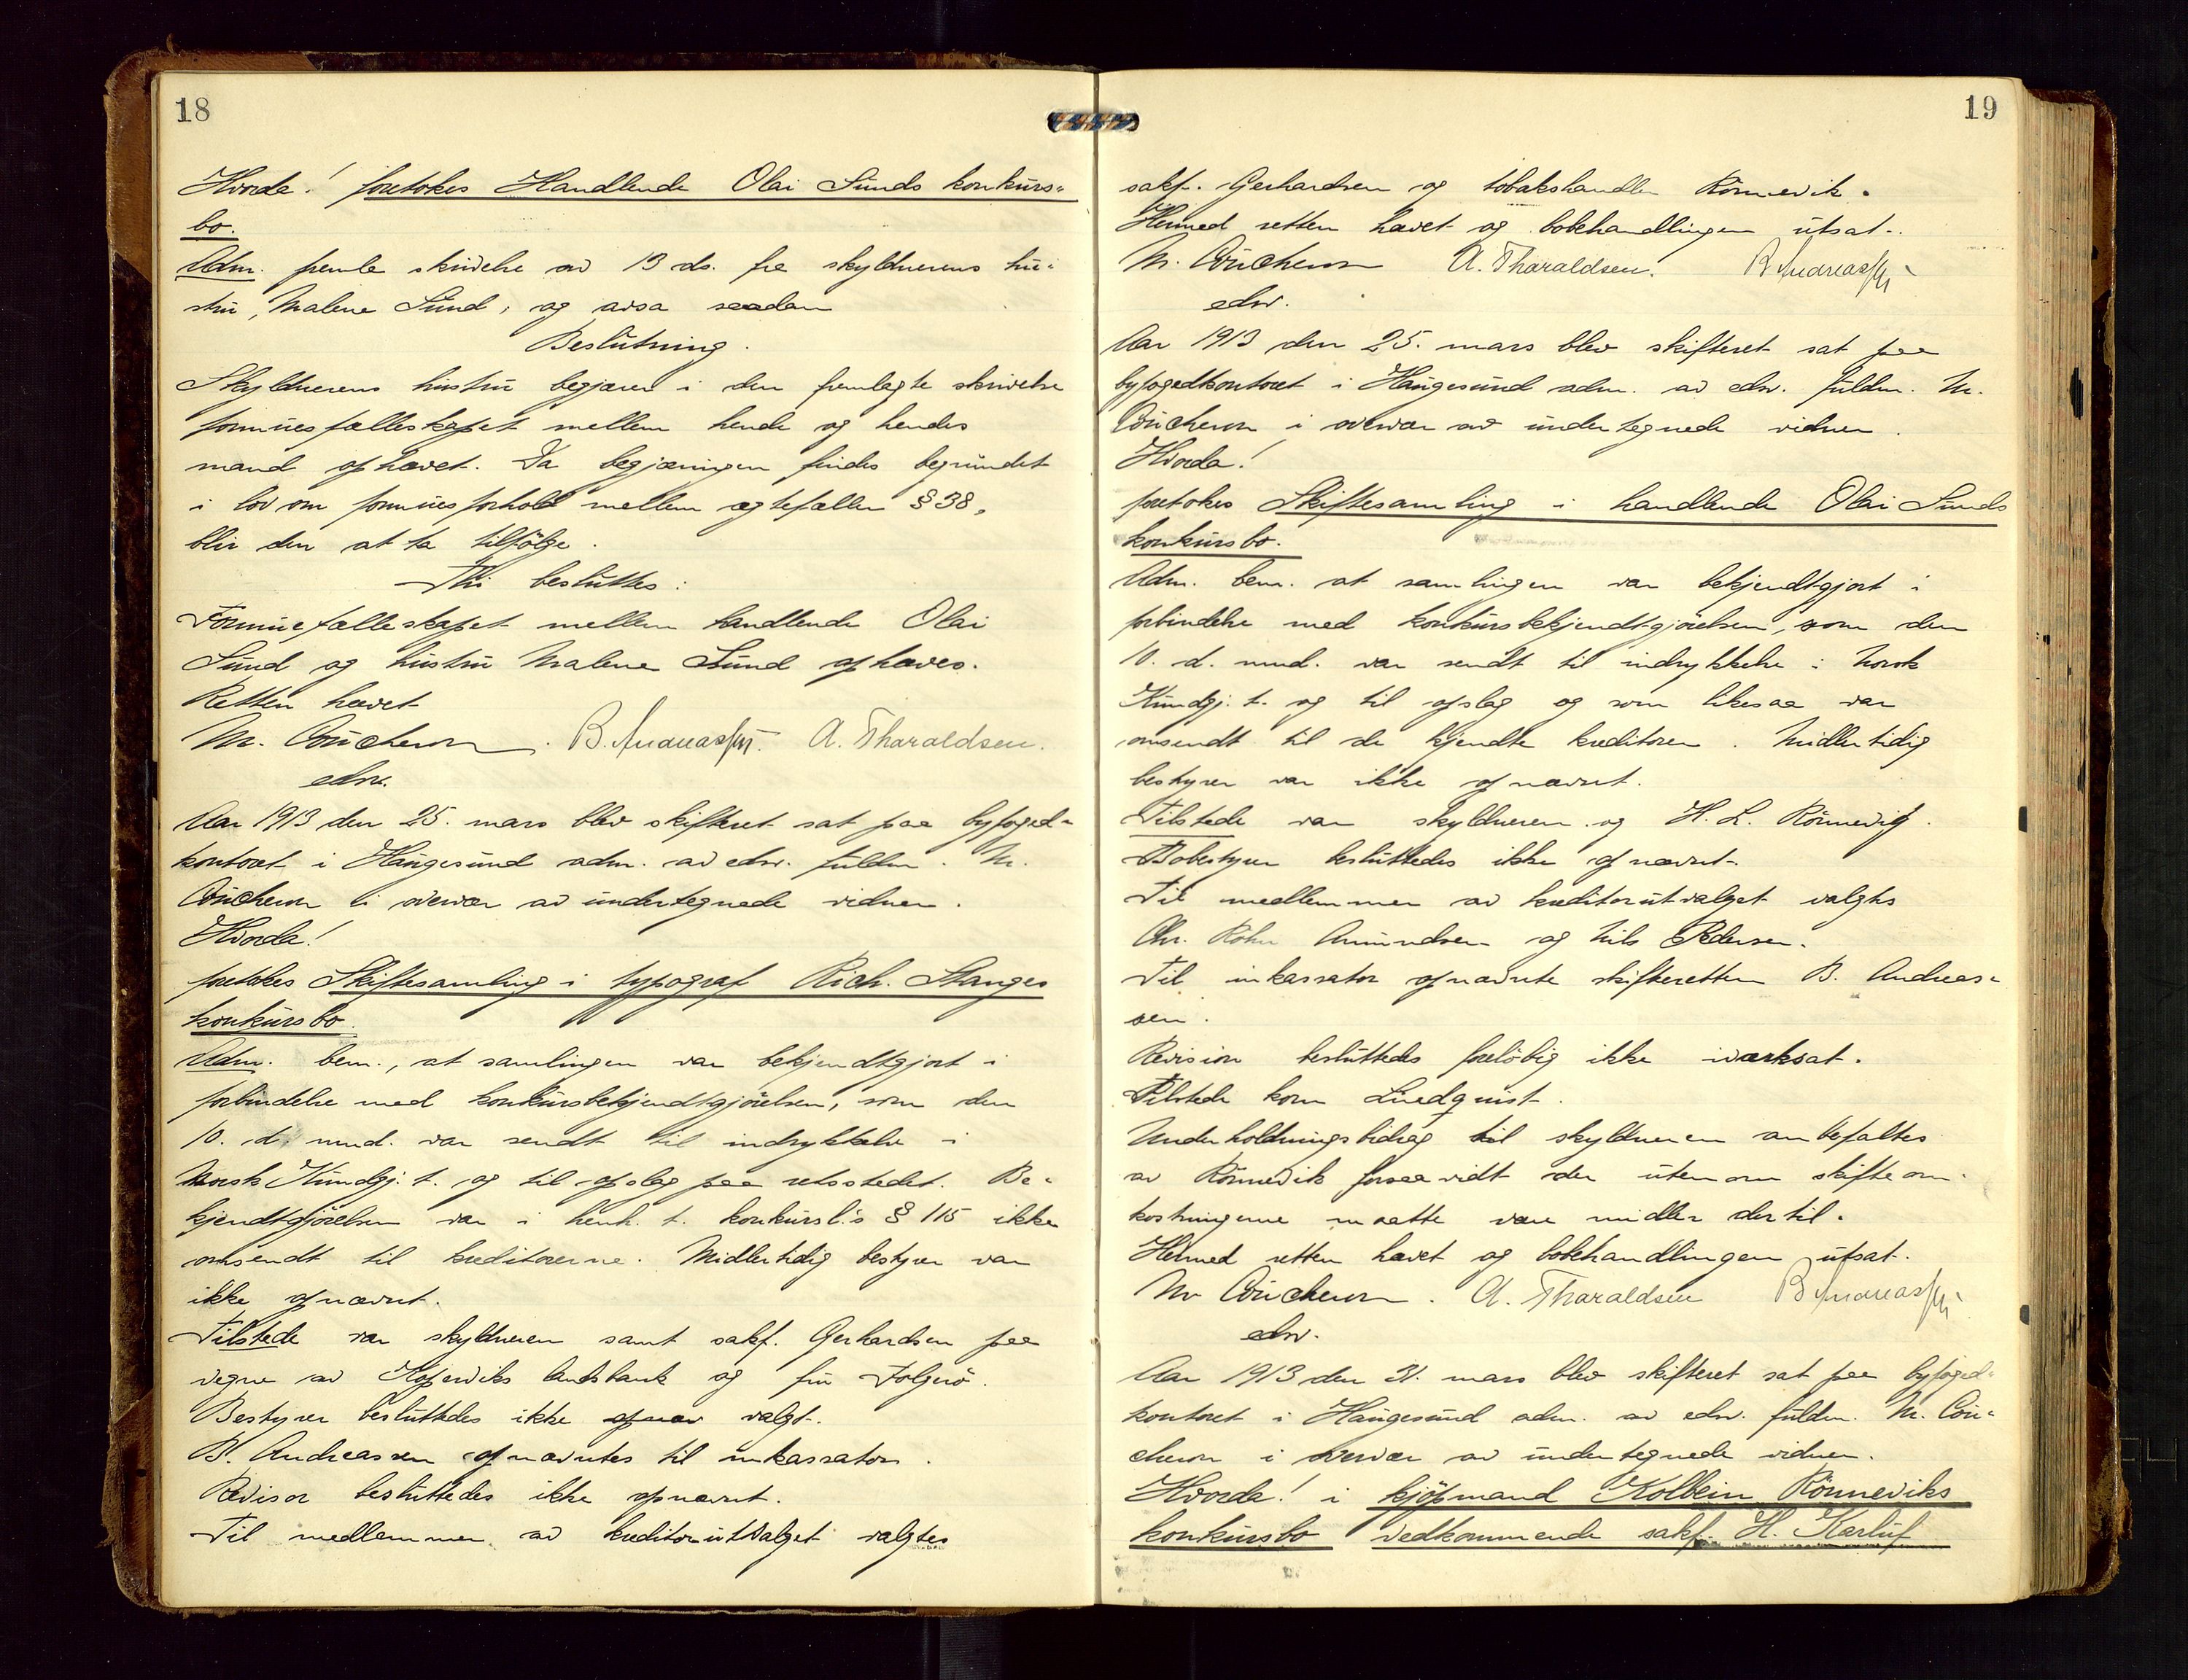 18
Hvorda! foretokes Handlende Olai Sunds konkurs-
bo.
Adm. femla skrivelse av 13 ds. fra skyldnerens hu-
stru, Malene Sund, og avsa saadan
Beslutning.
Skyldnerens hustru begjærer i den fremlagte skrivelse
formuesfælleskapet mellem hende og hendes
mand ophævet. Da begjæringen findes begrundet
i lov om formuesforhold mellem ægtefæller § 38,
blir den at ta tilfølge.
Thi besluttes:
Formuefælleskapet mellem handlende Olai
Sund og hustru Malene Sund ophæves.
Retten hævet
M. Coucheron. B. Andreassen. A. Tharaldsen.
edsv.
Aar 1913 den 25. mars blev skifteret sat paa byfoged-
kontoret i Haugesund adm. av edsv. fuldm. M.
Coucheron i overvær av undertegnede vidner.
Hvorda!
foretokes Skiftesamling i typograf Rich. Stanges
konkursbo.
Adm. bem., at samlingen var bekjendtgjort i
forbindelse med konkursbekjendtgjørelsen, som den
10. d. mnd. var sendt til indrykkelse i
Norsk Kundgj. t. og til opslag paa retsstedet. Be-
kjendtgjørelsen var i henh. t. konkursl.s § 115 ikke
omsendt til kreditorerne. Midlertidig bestyrer var
ikke opnævnt.
Tilstede var skyldneren samt sakf. Gerhardsen paa
vegne av Kopervik landsbank og fru Folgerø.
Bestyrer besluttedes ikke opnæv valgt.
B. Andreassen opnævntes til inkassator.
Revisor besluttedes ikke opnævnt.
Til medlemmer av kreditorutvalget valgtes
19
sakf. Gerhardsen og tobakshandler Rönnevik.
Hermed retten hævet og bobehandlingen utsat.
M. Coucheron A. Tharaldsen. B Andreassen
edsv.
Aar 1913 den 25. mars blev skifteret sat paa
byfogedkontoret i Haugesund adm. av edsv. fuldm. M.
Coucheron i overvær av undertegnede vidner.
Hvorda!
foretokes Skiftesamling i handlende Olai Sunds
konkursbo.
Adm. bem. at samlingen var bekjendtgjort i
forbindelse med konkursbekjendtgjörelsen, som den
10. d. mnd. var sendt til indrykkelse i Norsk
Kundgj. t. og til opslag og som likesaa var
omsendt til de kjendte kreditorer. Midlertidig
bestyrer var ikke opnævnt.
Tilstede var skyldneren og H. L. Rönnevig.
Bobestyrer besluttedes ikke opnævnt.
Til medlemmer av kreditorutvalget valgtes
Chr. Amundsen og Nils Pedersen.
Til inkassator opnævnte skifteretten B. Andreas-
sen.
Revision besluttedes foreløbig ikke iverksat.
Tilstede kom Lindquist.
Underholdningsbidrag til skyldneren anbefaltes
av Rönnevik forsaavidt der utenom skifteom-
kostningerne maatte være midler dertil.
Hermed retten hævet og bobehandlingen utsat.
M Coucheron. A. Tharaldsen B Andreassen
edsv.
Aar 1913 den 31. mars blev skifteret sat paa byfoged-
kontoret i Haugesund adm. av edsv. fuldm. M. Cou-
cheron i overvær av undertegnede vidner.
Hvorda! i kjöpmand Kolbein Rönneviks
konkursbo vedkommende sakf. H.